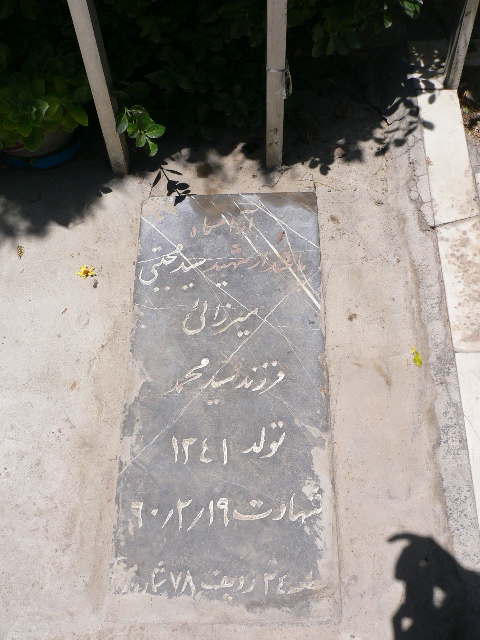 آرامگاه
پاسدار شهید سید مجتبی
میرزائی
فرزند سید محمد
تولد ۱۳۴۱
شهادت ۶۰/۲/۱۹
۲۴ ردیف ۷۸